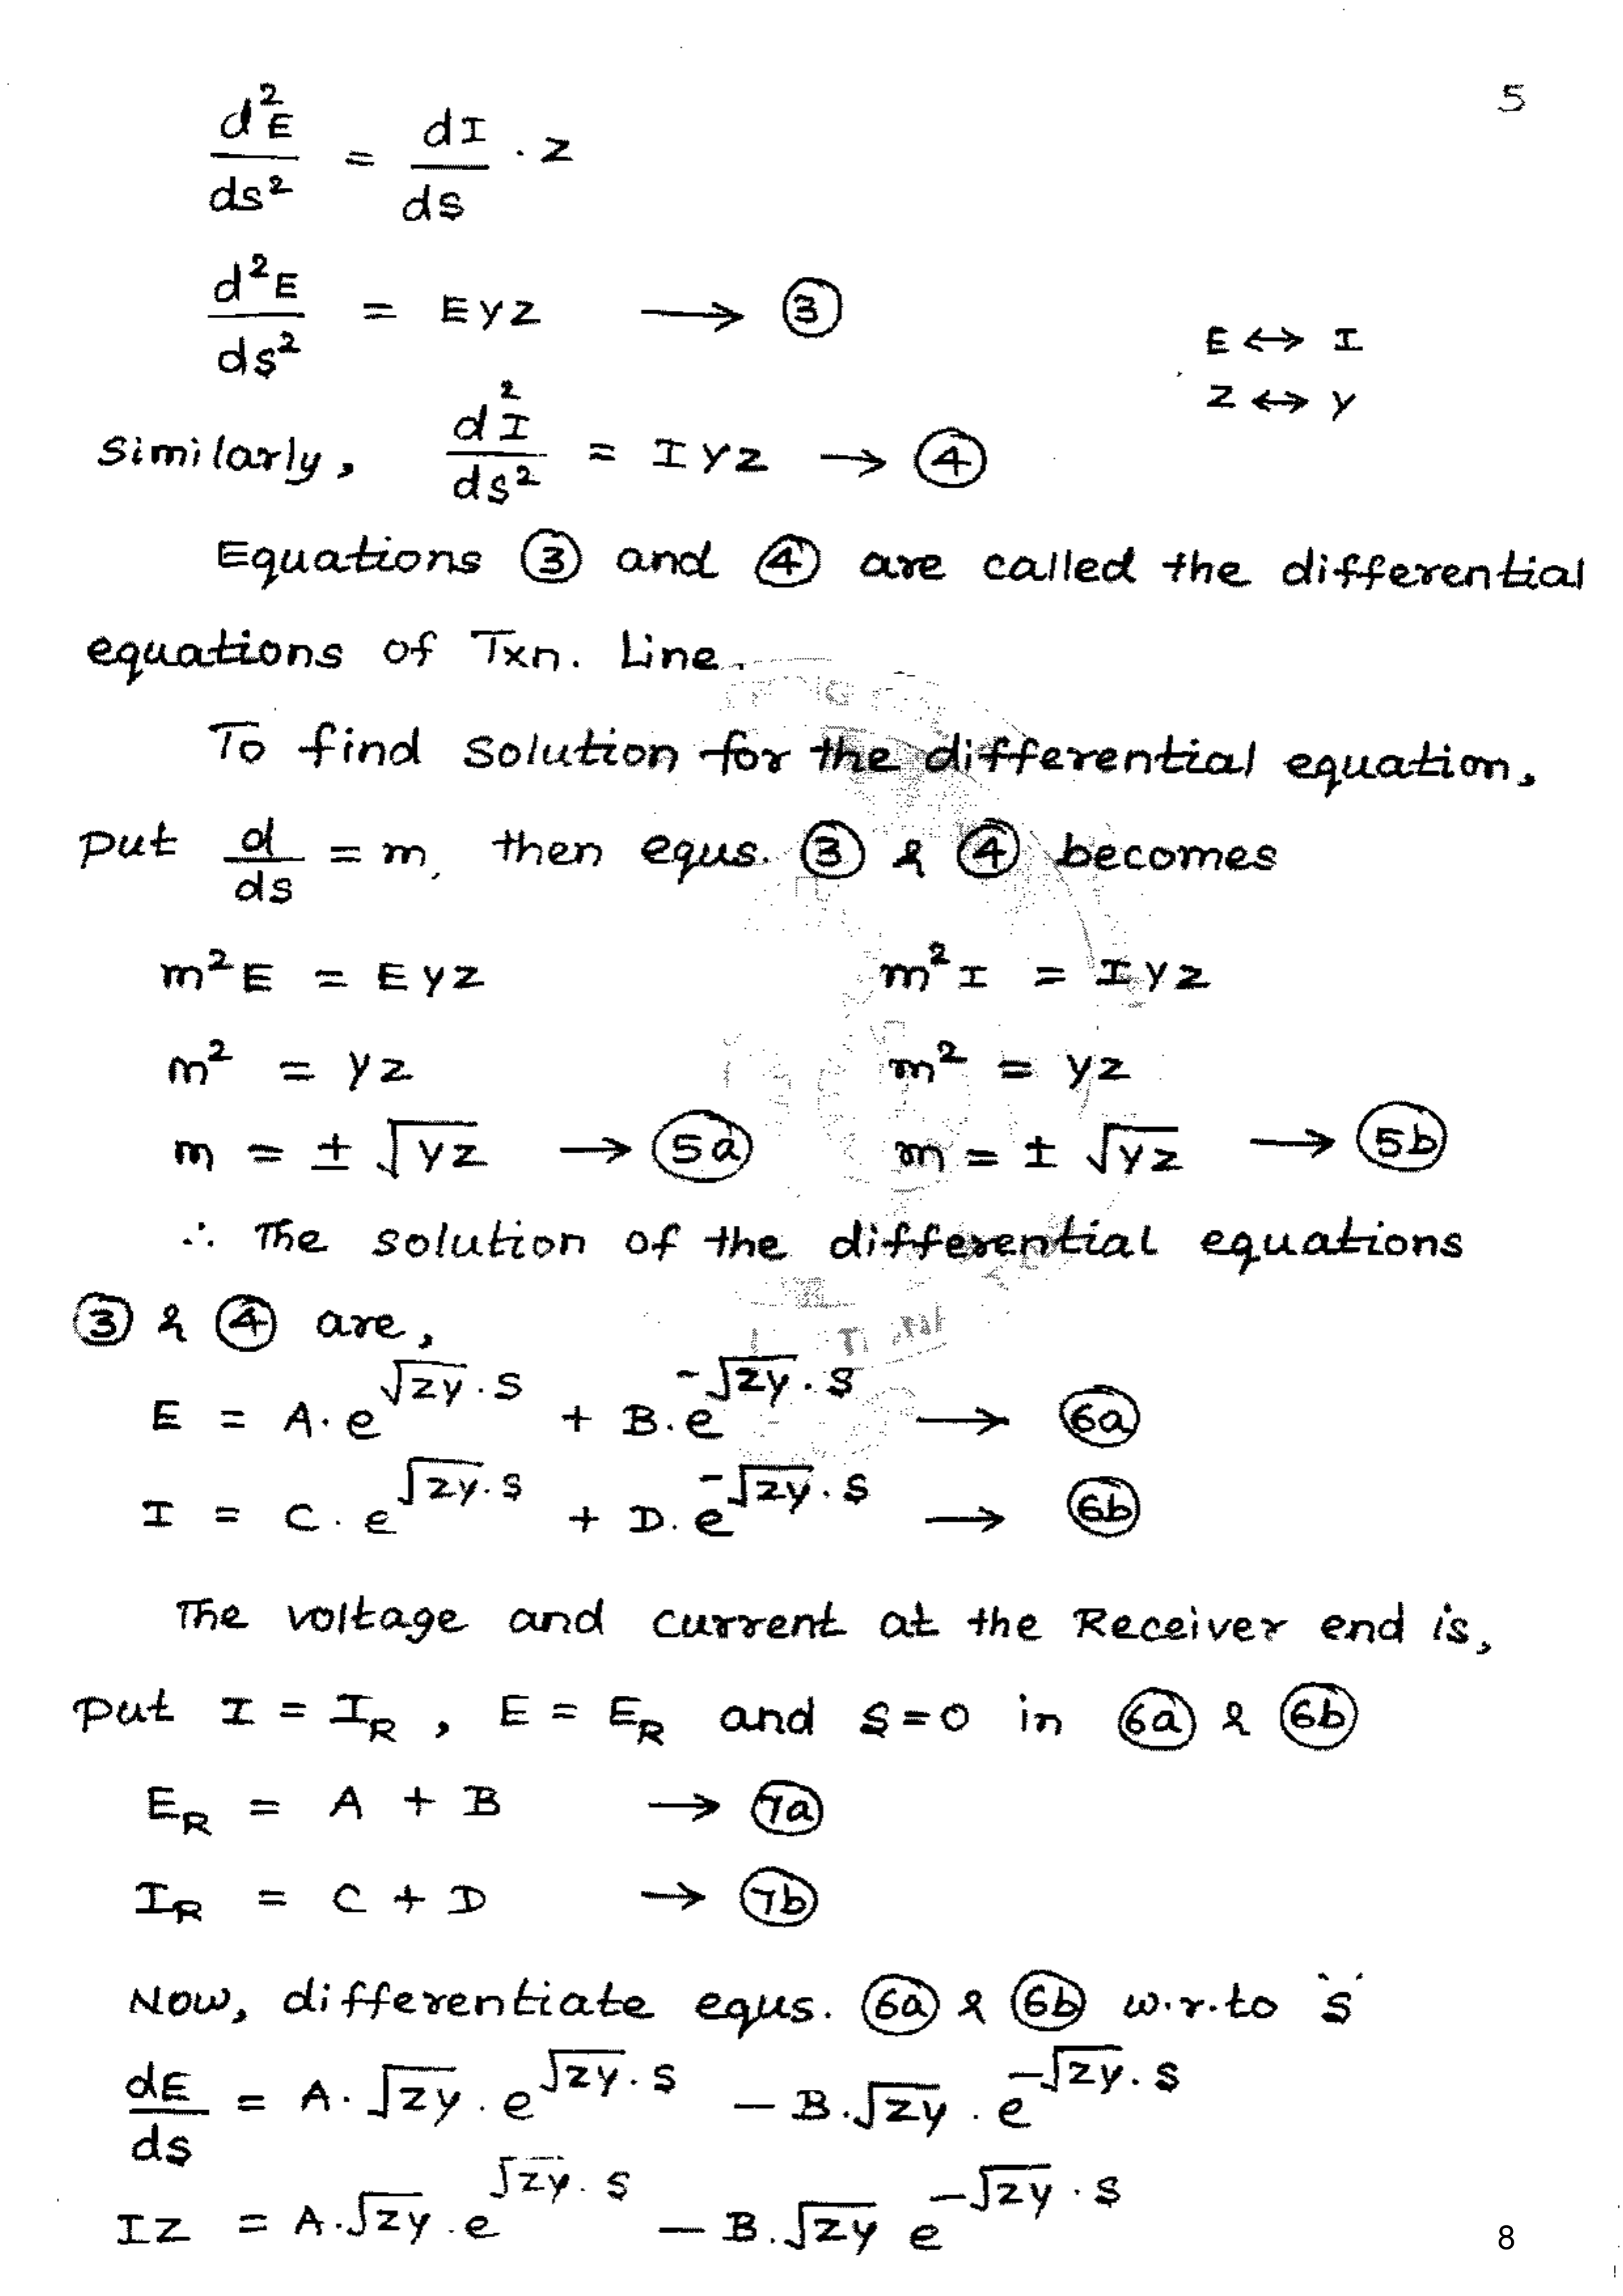 5
d²E/ds² = dI/ds · z
d²E/ds² = Eyz → ③
E ↔ I
z ↔ y
Similarly, d²I/ds² = Iyz → ④
Equations ③ and ④ are called the differential
equations of Txn. Line.
To find solution for the differential equation,
put d/ds = m, then equs. ③ & ④ becomes
m²E = Eyz m²I = Iyz
m² = yz m² = yz
m = ± √yz → 5a m = ± √yz → 5b
∴ The solution of the differential equations
③ & ④ are,
E = A·e^(√zy·s) + B.e^(-√zy·s) → 6a
I = C·e^(√zy·s) + D.e^(-√zy·s) → 6b
The voltage and current at the Receiver end is,
put I = I_R, E = E_R and s=0 in 6a & 6b
E_R = A + B → 7a
I_R = C + D → 7b
Now, differentiate equs. 6a & 6b w.r.to 's'
dE/ds = A·√zy·e^(√zy·s) − B.√zy·e^(-√zy·s)
Iz = A.√zy.e^(√zy·s) − B.√zy e^(-√zy·s)
8